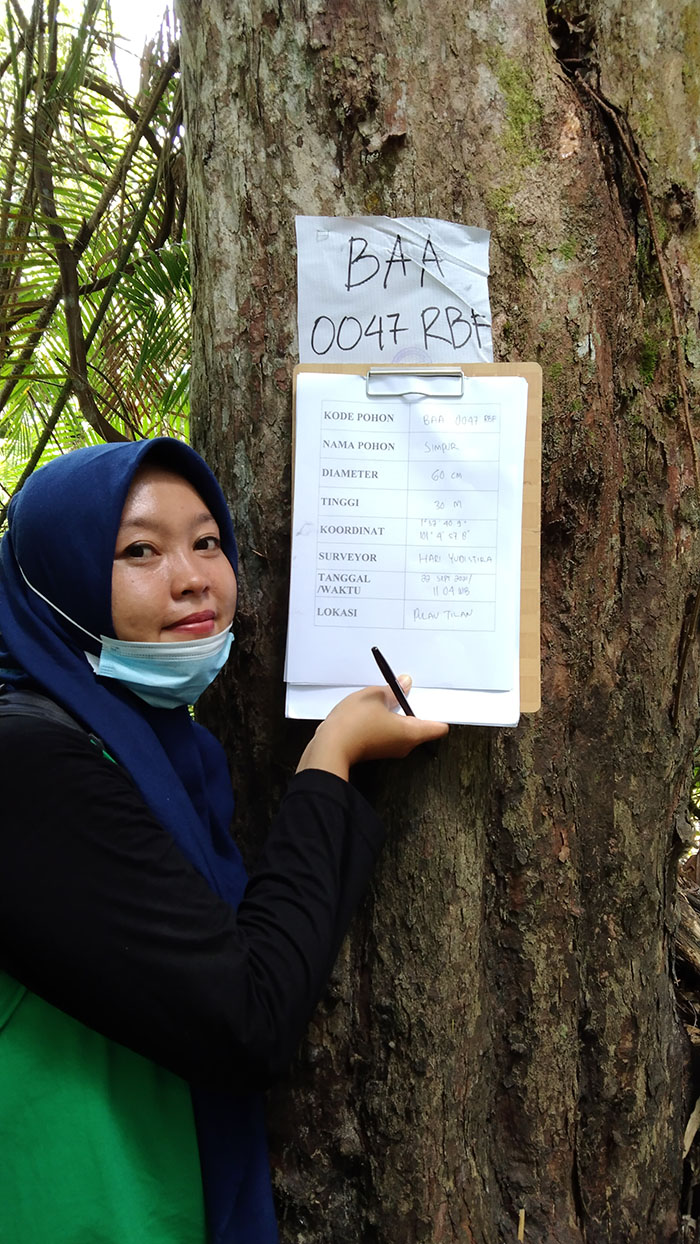 BAA
0047 RBF
KODE POHON BAA 0047 RBF
NAMA POHON SIMPUR
DIAMETER 60 cm
TINGGI 30 M
KOORDINAT 1° 57' 40 9"
101° 4' 57 8"
SURVEYOR HARI YUDISTIRA
TANGGAL 27 SEPT 2021
/WAKTU 11 09 WIB
LOKASI PULAU TILAN